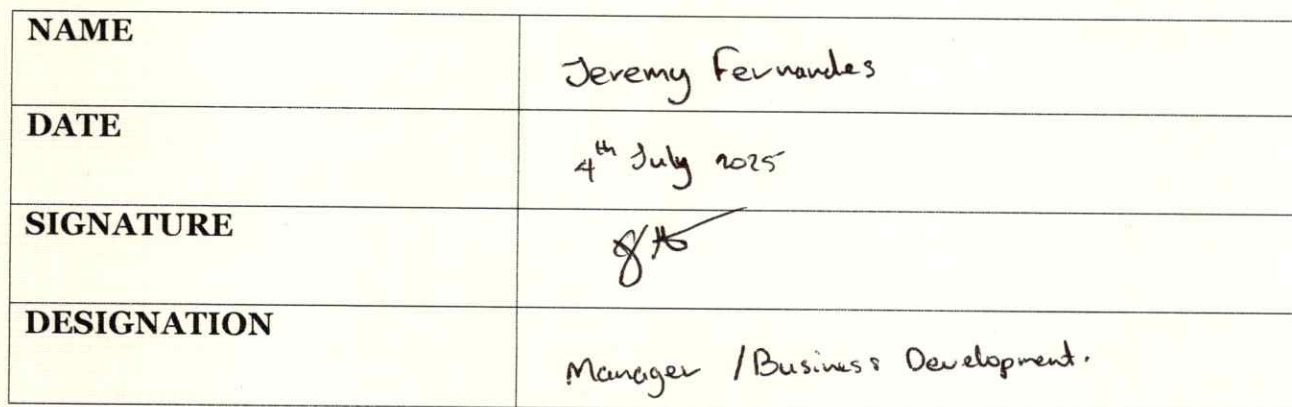 NAME
Jeremy Fernandes
DATE
4th July 2025
SIGNATURE
DESIGNATION
Manager / Business Development.